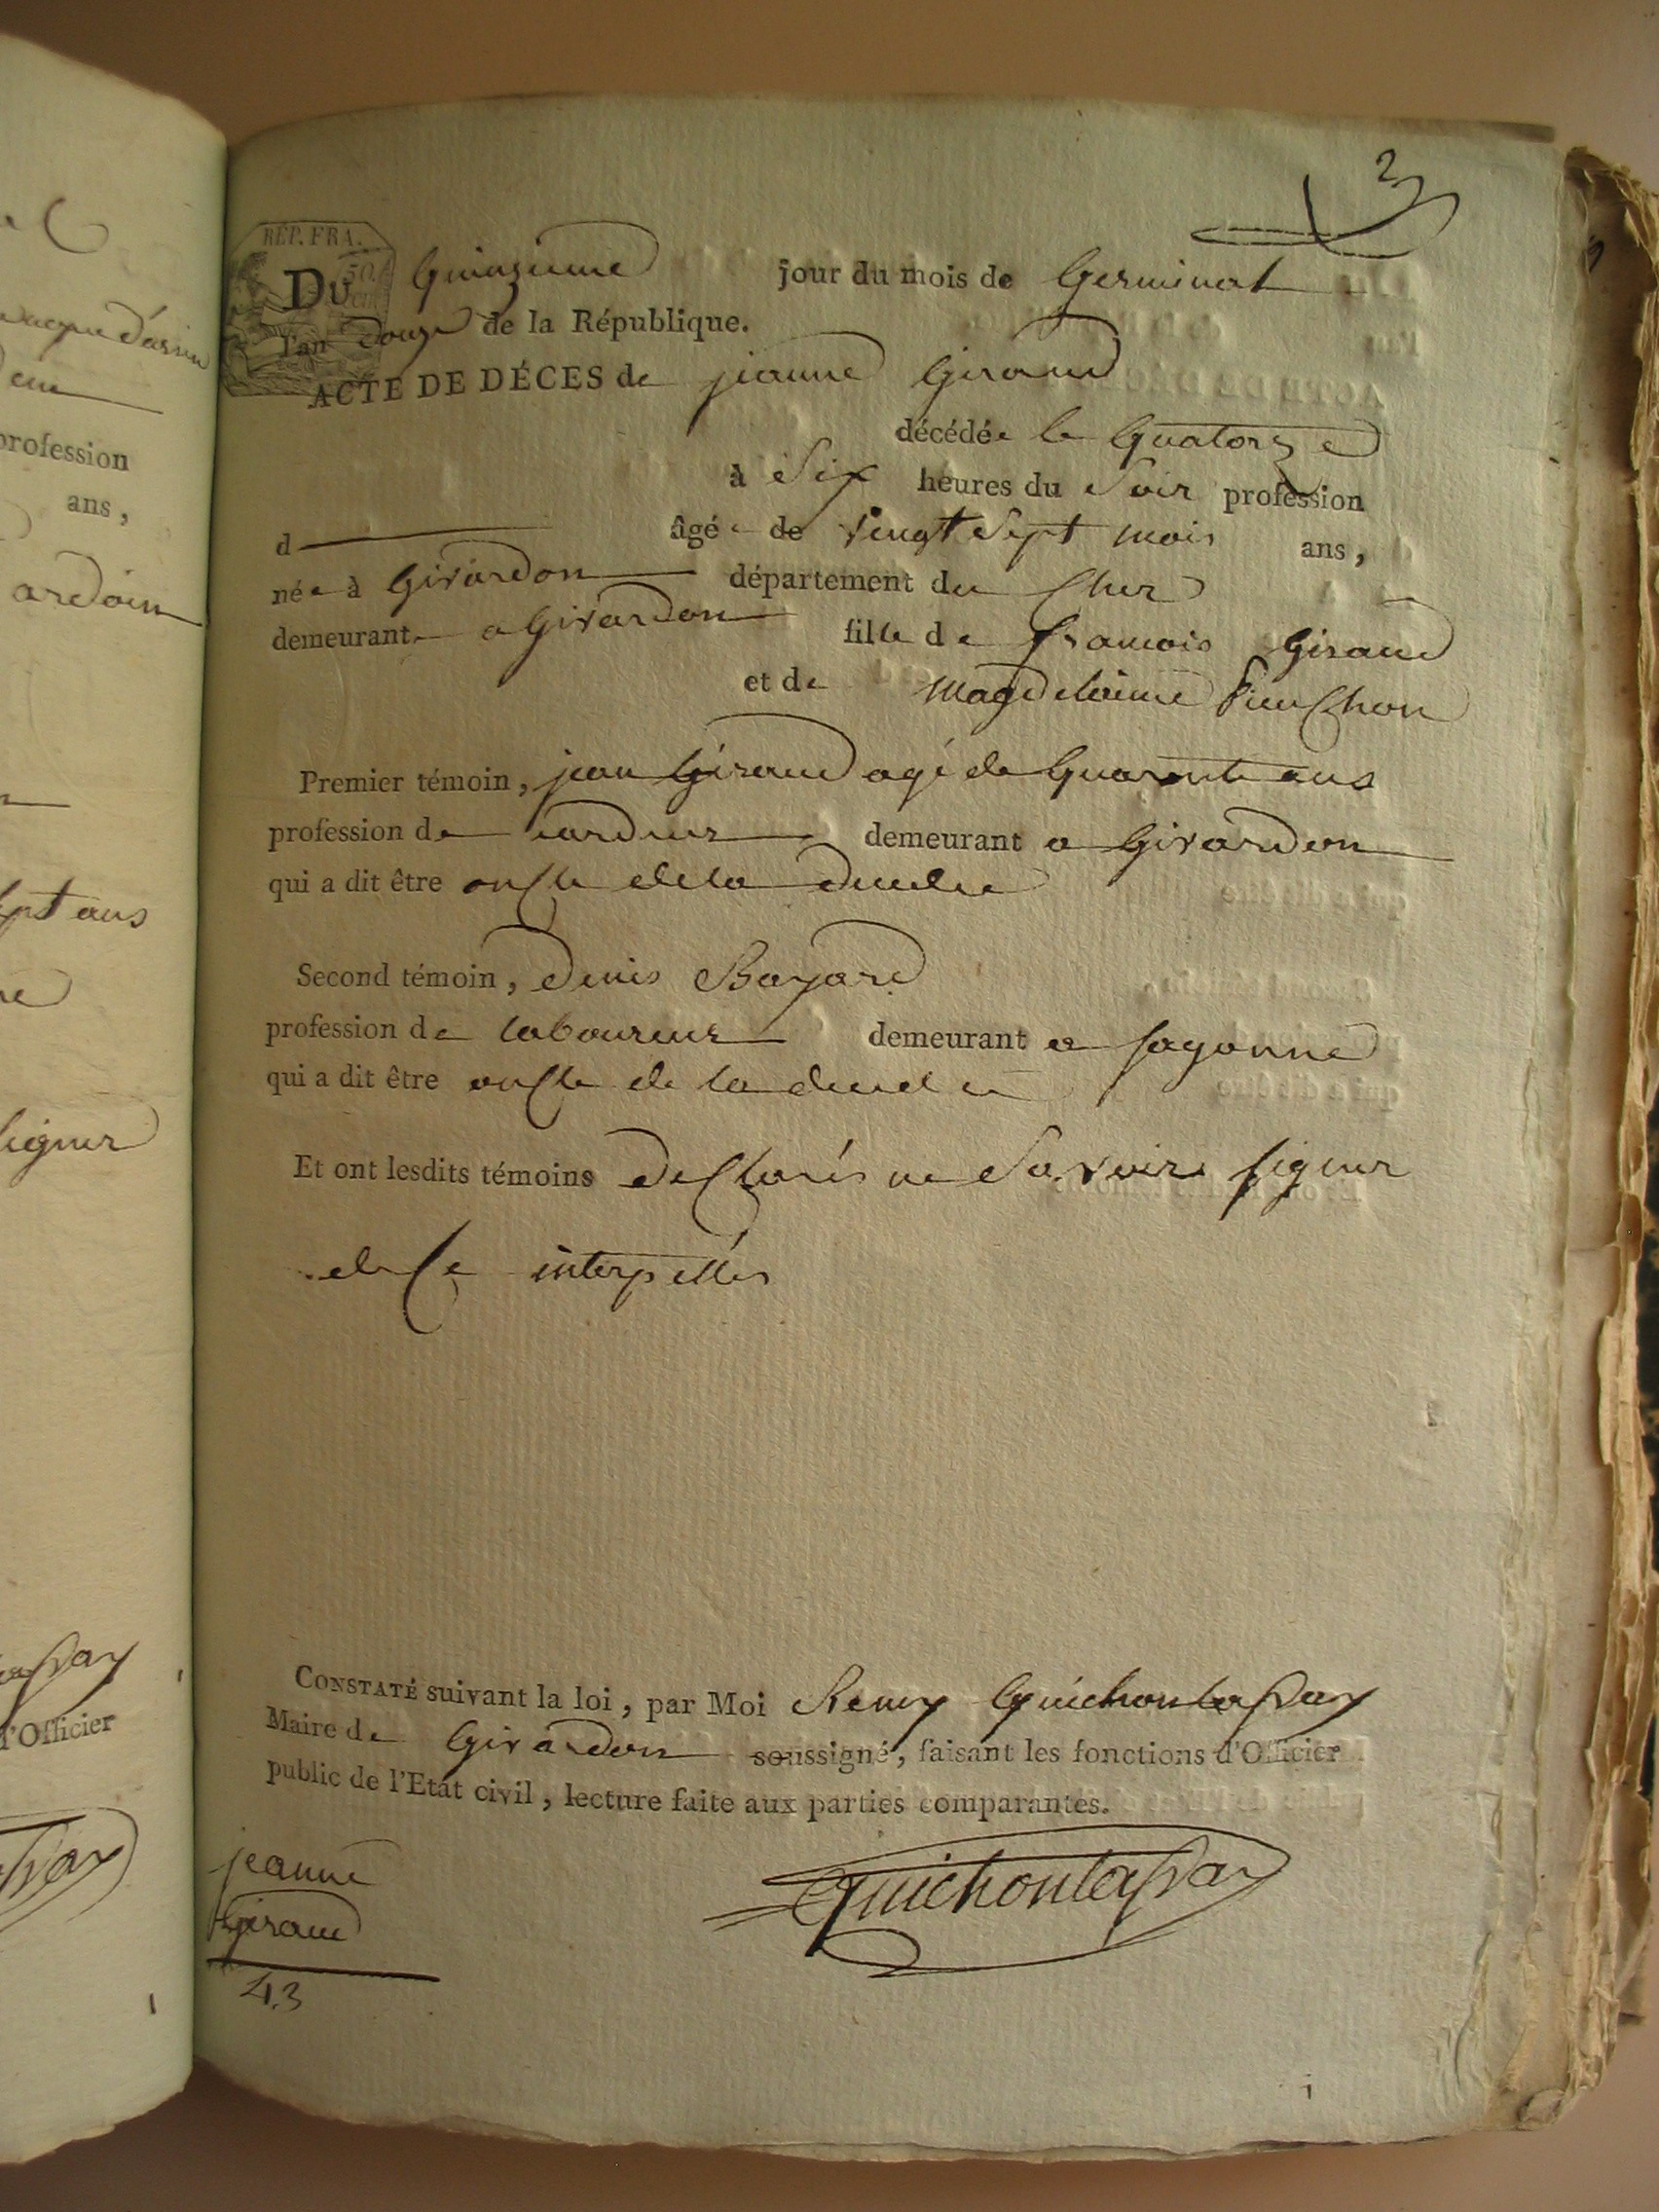 acque d'arsin
profession
ans,
ardoin
sept ans
signer
l'Officier
3
RÉP. FRA.
DU Quinzieme jour du mois de Germinal
l'an Douze de la République.
ACTE DE DÉCES de jeanne Giraud
décédée le Quatorze
à Six heures du Soir profession
d âgée de vingt Sept mois ans,
née à Givardon département du Cher
demeurante a Givardon fille de francois Giraud
et de Magdelaine
Premier témoin, jean Giraud agé de Quarente ans
profession de cardeur demeurant a Givardon
qui a dit être oncle dela deedee
Second témoin, Denis Bayard
profession de laboureur demeurant a sagonne
qui a dit être oncle de la deedee
Et ont lesdits témoins declarés ne Savoir signer
de ce interpellés
CONSTATÉ suivant la loi, par Moi Remy Guichonlapray
Maire de Givardon soussigné, faisant les fonctions d'Officier
public de l'Etat civil, lecture faite aux parties comparantes.
jeanne
Giraud
43
Guichonlapray